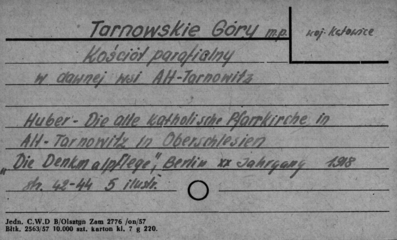 Tarnowskie Góry m.p. woj. Katowice
Kościół parafialny
w dawnej wsi Alt-Tarnowitz
Huber - Die alte katholische Pfarrkirche in
Alt-Tarnowitz in Oberschlesien
„Die Denkmalpflege", Berlin XX Jahrgang 1918
str. 42-44 5 ilustr.
Jedn. C.W.D B/Olsztyn Zam 2776 /on/57
Bltk. 2563/57 10.000 szt. karton kl. 7 g 220.